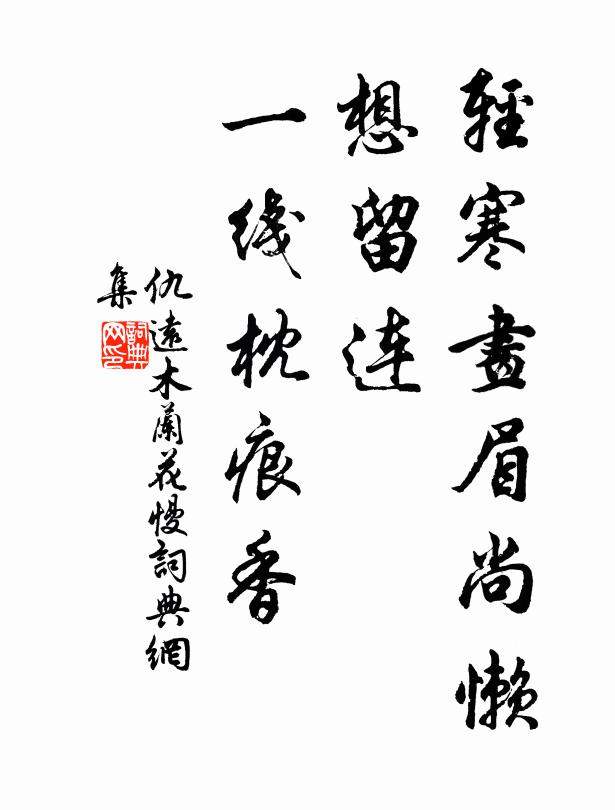 輕寒畫眉尚懒
想留连
一线枕痕香
仇遠木蘭花慢詞典網
集
詞典
网印